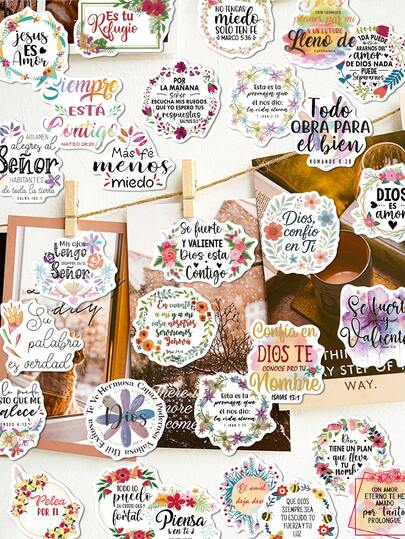 Jesús
ES
Amor
Es tu
Refugio
NO TENGAS
miedo
SOLO TEN FE
MARCO 5:36
planes para mí
Y UN FUTURO
Lleno de
NADA PUEDE
DEL
amor
DE DIOS NADA
PUEDE
Siempre
ESTÁ
Contigo
MATEO 28:20
POR
LA MAÑANA
Señor
ESCUCHA MIS RUEGOS
QUE YO ESPERO TUS
respuestas
Esta es la
promesa que
él nos dio:
la vida eterna
1 JUAN 2:25
Todo
OBRA PARA
el bien
ROMANOS 8:28
ACLAMEN
alegres al
Señor
HABITANTES
de toda la tierra
SALMO 100:1
Más fe
menos
miedo
DIOS
ES
amor
Mis ojos
Tengo
SIEMPRE EN EL
Señor
Se fuerte
Y VALIENTE
Dios esta
Contigo
Dios,
confío
en Ti
Su
palabra
es verdad
En cuanto
a mí y a mi
casa nosotros
serviremos
a Jehová
Confía en
DIOS TE
CONOCE POR TU
Nombre
ISAIAS 43:1
Se fuerte
y
Valiente
THIN
EP OF
WAY.
Te Ve Hermosa Capaz Poderosa Valiosa Util Exitosa
Dios
Esta es la
promesa que
él nos dio:
la vida eterna
1 JUAN 2:25
Dios
TIENE UN PLAN
que lleva
TU
nombre
Pelea
POR TI
Todo lo
puedo
EN CRISTO QUE ME
fortalece
Piensa
en ti
El amor
deja
QUE DIOS
SIEMPRE SEA
TU ESCUDO,
TU FUERZA
Y TU LUZ
CON AMOR
ETERNO TE HE
AMADO
por tanto
PROLONGUÉ